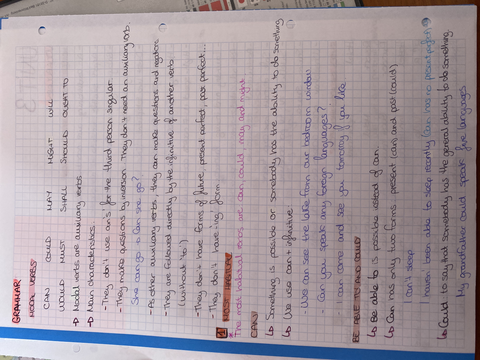 GRAMMAR
MODAL VERBS
CAN COULD MAY MIGHT WILL
WOULD MUST SHALL SHOULD OUGHT TO
Modal verbs are auxiliary verbs
Main characteristics:
- They don't use an s for the third person singular
- They make questions by inversion. They don't need an auxiliary verb.
She can go to Can she go?
- As other auxiliary verbs, they can make questions and negations
- They are followed directly by the infinitive of another verb
(without to)
- They don't have forms of future, present perfect, past perfect...
- They don't have ing form
MOST HABITUAL
The most habitual verbs are can, could, may and might
CAN
Something is possible or somebody has the ability to do something
We use can + infinitive
- We can see the lake from our bedroom window
- Can you speak any foreign languages?
- I can come and see you tomorrow if you like
BE ABLE TO AND COULD
Be able to is possible instead of can
Can has only two forms: present (can) and past (could)
I can't sleep
I haven't been able to sleep recently (can has no present perfect)
Could to say that somebody has the general ability to do something
My grandfather could speak five languages